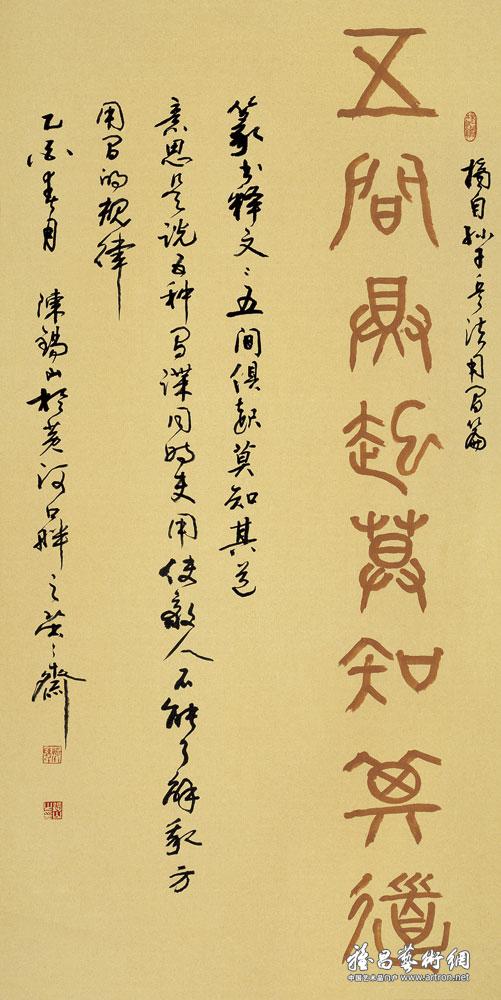 摘自孙子兵法用间篇
五間俱起莫知其道
篆书释文:五間俱起莫知其道
意思是说五种间谍同时使用使敵人不能了解我方
用间的规律
乙酉春月 陳錫山於黄河口畔之齋
雅昌藝術網
中国艺术品门户 www.artron.net